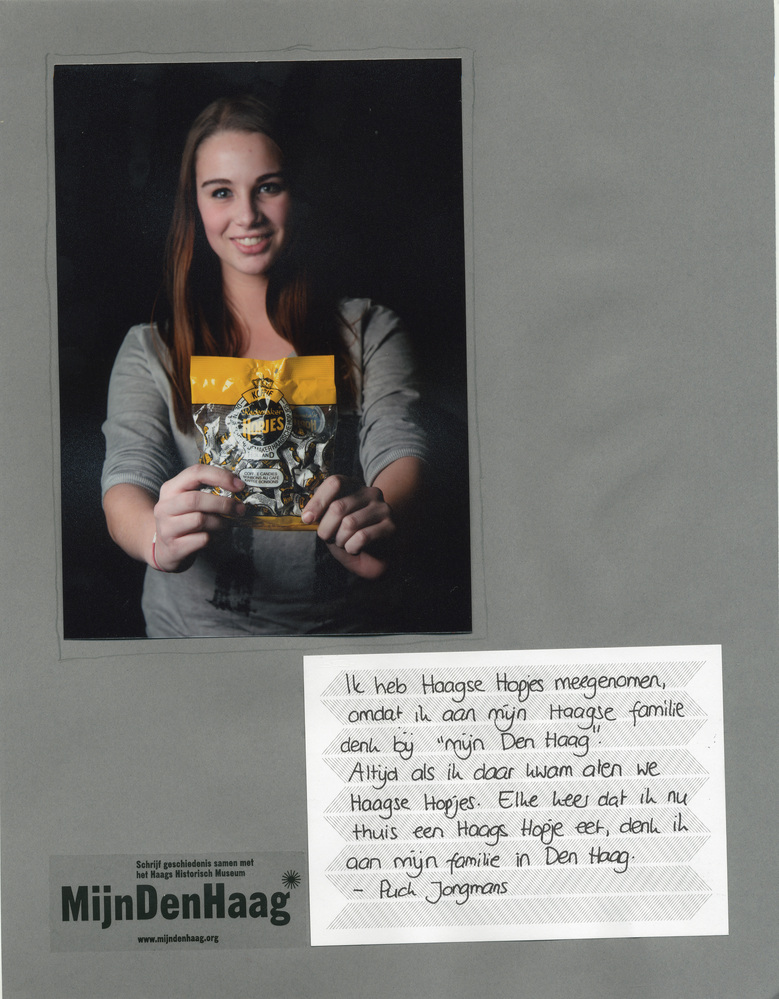 KOFFIE
Rademaker
HOPJES
Ik heb Haagse Hopjes meegenomen,
omdat ik aan mijn Haagse familie
denk bij "mijn Den Haag".
Altijd als ik daar kwam aten we
Haagse Hopjes. Elke keer dat ik nu
thuis een Haags Hopje eet, denk ik
aan mijn familie in Den Haag.
- Puck Jongmans
Schrijf geschiedenis samen met
het Haags Historisch Museum
MijnDenHaag
www.mijndenhaag.org